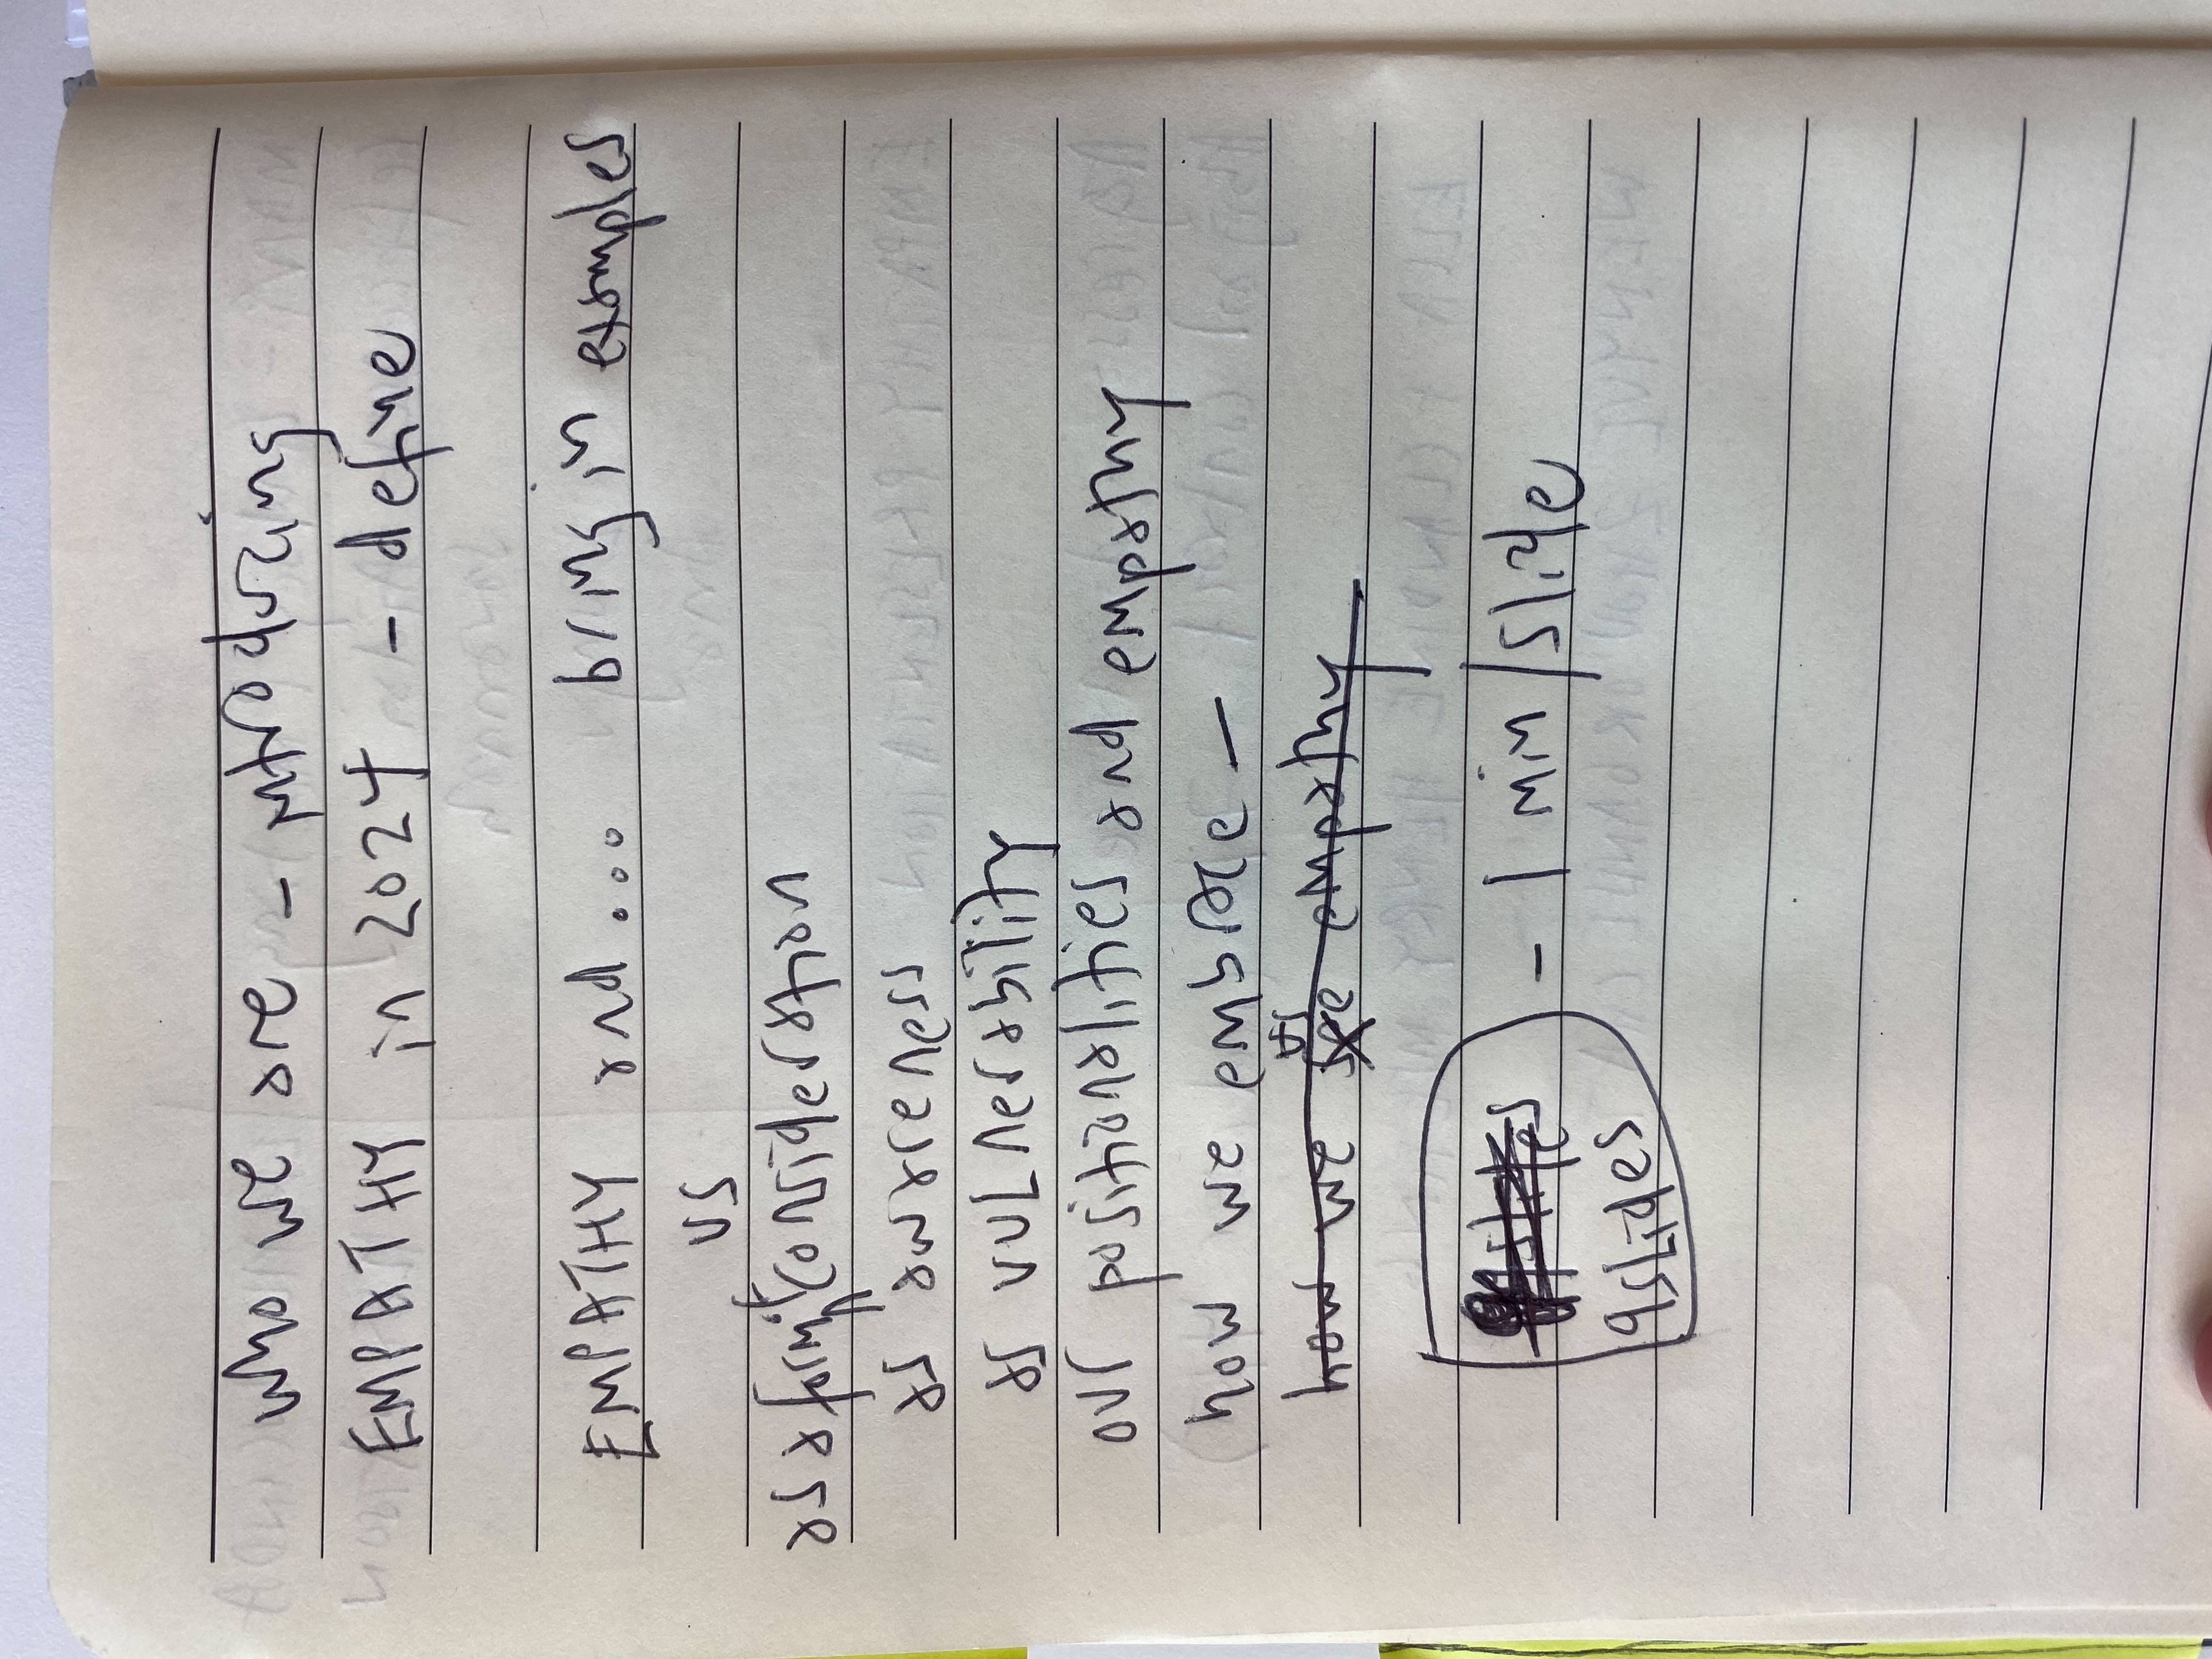 who we are - introducing
EMPATHY in 2024 - define
EMPATHY and.... bring in examples
us
as a Consideration
as awareness
as VULnerability
our positionalities and empathy
how we embrace -
how we see empathy
- 1 min/slide
9 slides